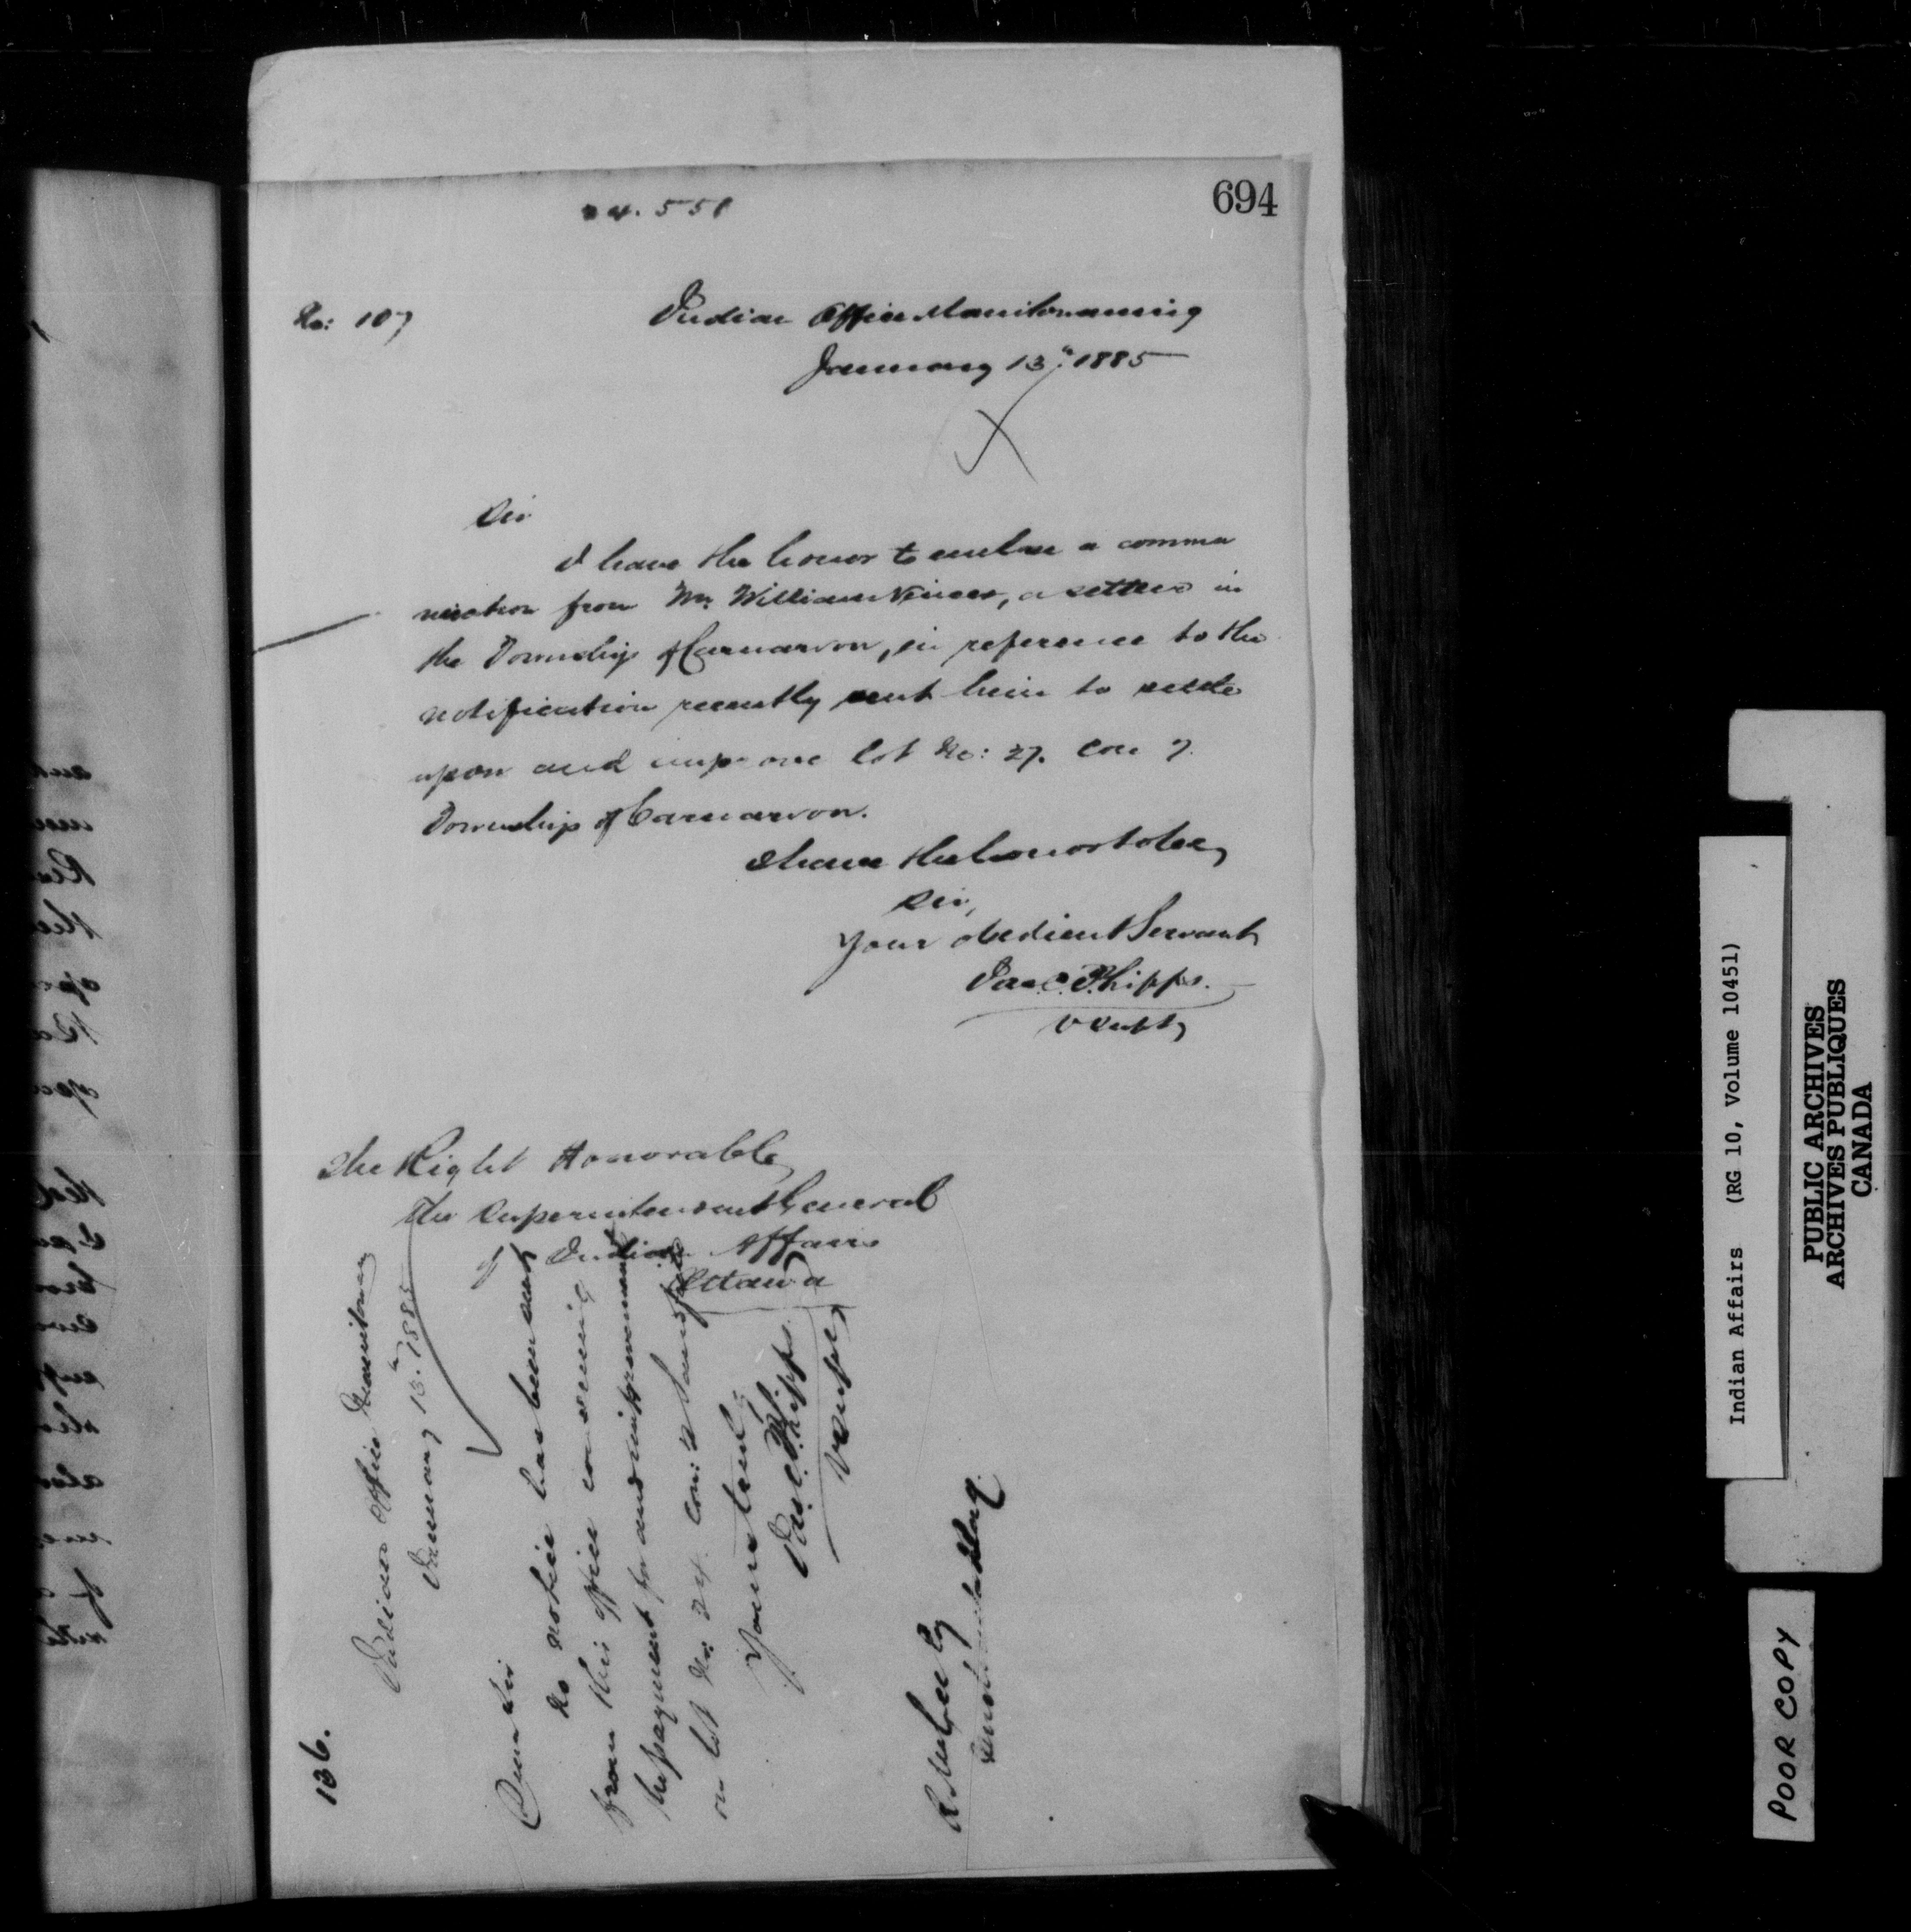 694
24.558
No: 107
Indian Office Manitowaning
January 13th 1885
Sir
I have the honor to enclose a commu
nication from Mr. William, a settler in
the Township of Carnarvon, in reference to the
notification recently sent him to settle
upon and improve lot No: 27. Con 7.
Township of Carnarvon.
I have the honor to be,
Sir,
Your obedient Servant
Jas. C. Phipps.
V Supt
The Right Honorable
The Superintendent General
of Indian Affairs
Ottawa
136.
Indian Office Manitowan
January 13th. 1885
Dear Sir
No notice has been sent
from this office concerning
the payment for and improvement
on lot No: 24. Con: 2
Yours truly
Jas. C. Phipps.
V Supt
Indian Affairs (RG 10, Volume 10451)
PUBLIC ARCHIVES
ARCHIVES PUBLIQUES
CANADA
POOR COPY